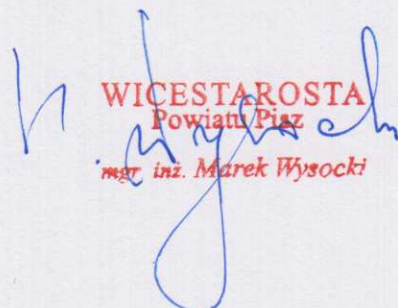 WICESTAROSTA
Powiatu Pisz
mgr inż. Marek Wysocki